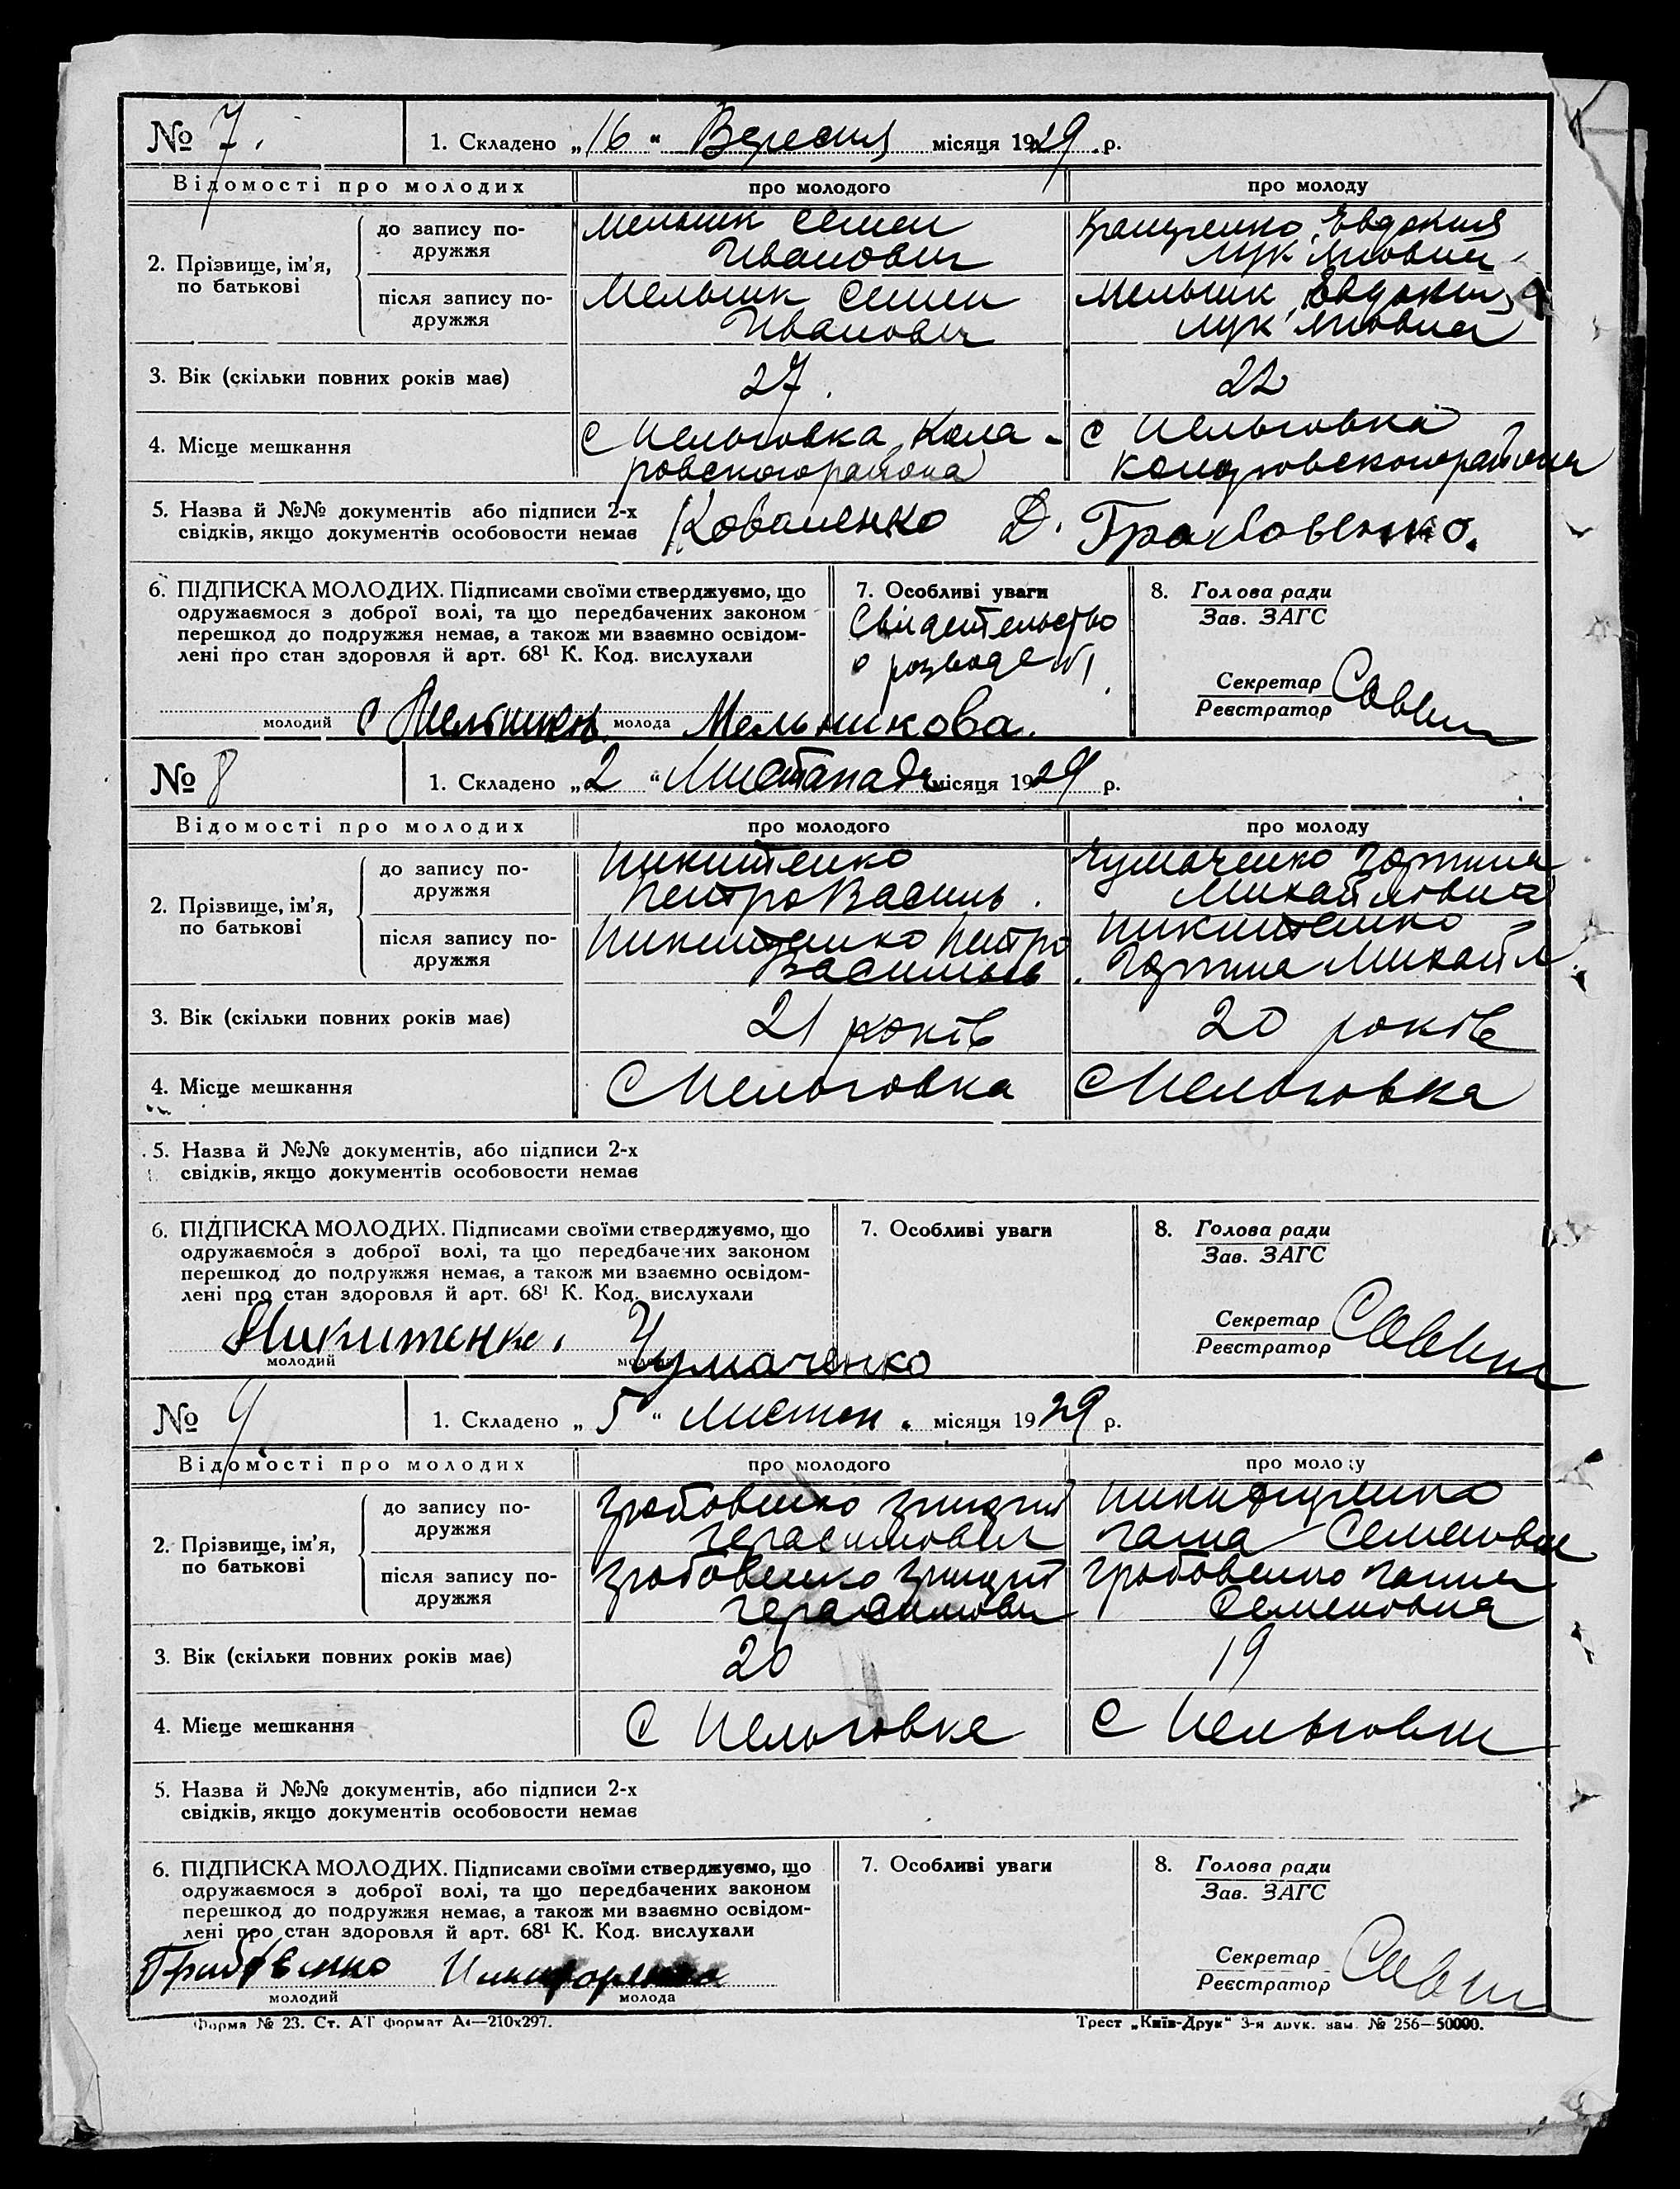 № 7. 1. Складено „16“ Вересня місяця 1929 р.
Відомості про молодих про молодого про молоду
2. Прізвище, ім'я, по батькові
до запису по-
дружжя
Мельник Семен
Иванович
Евдокия
Лук'яновна
після запису по-
дружжя
Мельник Семен
Иванович
Мельник Евдокия
Лук'яновна
3. Вік (скільки повних років має) 27. 22
4. Місце мешкання
с Мельговка
ровского района
с Мельговка
района
5. Назва й №№ документів або підписи 2-х
свідків, якщо документів особовости немає
Коваленко Д. Грабовенко.
6. ПІДПИСКА МОЛОДИХ. Підписами своїми стверджуємо, що
одружаємося з доброї волі, та що передбачених законом
перешкод до подружжя немає, а також ми взаємно освідом-
лені про стан здоровля й арт. 68¹ К. Код. вислухали
7. Особливі уваги
Свидетельство
о розводе
8. Голова ради
Зав. ЗАГС
Секретар
Реєстратор
молодий молода Мельникова.
№ 8 1. Складено „2“ Листопада місяця 1929 р.
Відомості про молодих про молодого про молоду
2. Прізвище, ім'я,
по батькові
до запису по-
дружжя
Никитенко
Петро Василь.
Чумаченко
Михайловна
після запису по-
дружжя
Никитенко Петро
Васильев
Никитенко
Михайл.
3. Вік (скільки повних років має) 21 років 20 років
4. Місце мешкання С Мельговка С Мельговка
5. Назва й №№ документів, або підписи 2-х
свідків, якщо документів особовости немає
6. ПІДПИСКА МОЛОДИХ. Підписами своїми стверджуємо, що
одружаємося з доброї волі, та що передбачених законом
перешкод до подружжя немає, а також ми взаємно освідом-
лені про стан здоровля й арт. 68¹ К. Код. вислухали
7. Особливі уваги
8. Голова ради
Зав. ЗАГС
Секретар
Реєстратор
Никитенко. Чумаченко
молодий молода
№ 9. 1. Складено „5“ Листоп. місяця 1929 р.
Відомості про молодих про молодого про молоду
2. Прізвище, ім'я,
по батькові
до запису по-
дружжя
Грабовенко
Герасимович
Семеновна
після запису по-
дружжя
Грабовенко
Герасимович
Грабовенко Ганна
Семеновна
3. Вік (скільки повних років має) 20 19
4. Місце мешкання С Мельговка С Мельговка
5. Назва й №№ документів, або підписи 2-х
свідків, якщо документів особовости немає
6. ПІДПИСКА МОЛОДИХ. Підписами своїми стверджуємо, що
одружаємося з доброї волі, та що передбачених законом
перешкод до подружжя немає, а також ми взаємно освідом-
лені про стан здоровля й арт. 68¹ К. Код. вислухали
7. Особливі уваги
8. Голова ради
Зав. ЗАГС
Секретар
Реєстратор
молодий молода
Форма № 23. Ст. АТ формат А4—210х297. Трест „Київ-Друк“ 3-я друк. зам. № 256—50000.